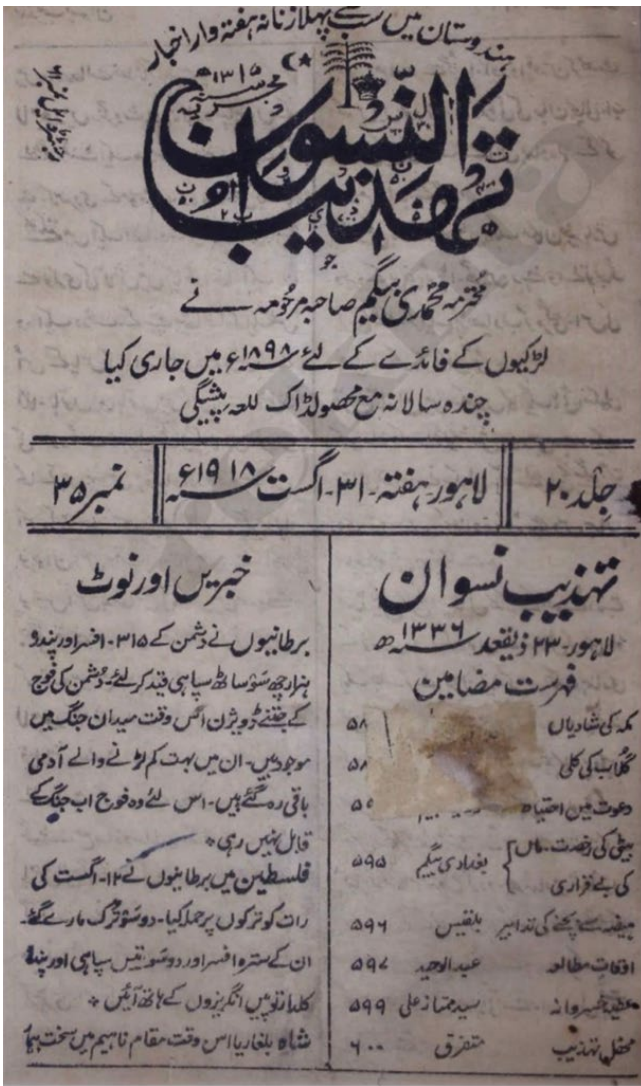 ہندوستان میں سب سے پہلا زنانہ ہفتہ وار اخبار
تہذیب النسواں
جو
محترمہ محمدی بیگم صاحبہ مرحومہ نے
لڑکیوں کے فائدے کے لئے ۱۸۹۸ء میں جاری کیا
چندہ سالانہ مع محصولڈاک للعہ پیشگی
جلد ۲۰
لاہور۔ ہفتہ۔ ۳۱۔ اگست ۱۹۱۸ء
نمبر ۳۵
تہذیب نسواں
لاہور۔ ۲۳ ذیقعد ۱۳۳۶ھ
فہرست مضامین
مکہ کی شادیاں
گلاب کی کلی
دعوت میں احتیاط
بیٹی کی رخصت۔ ماں کی بے قراری بغدادی بیگم ۵۹۵
ہیضہ سے بچنے کی تدابیر بلقیس ۵۹۶
اوقات مطالعہ عبدالوحید ۵۹۷
سید ممتاز علی ۵۹۹
محفل تہذیب متفرق ۶۰۰
خبریں اور نوٹ
برطانیوں نے دشمن کے ۳۱۵۔ افسر اور پندرہ
ہزار چھ سو ساٹھ سپاہی قید کر لئے۔ دشمن کی فوج
کے جتنے ڈویژن اس وقت میدان جنگ میں
موجود ہیں۔ ان میں بہت کم لڑنے والے آدمی
باقی رہ گئے ہیں۔ اس لئے وہ فوج اب جنگ کے
قابل نہیں رہی؞
فلسطین میں برطانیوں نے ۱۲۔ اگست کی
رات کو ترکوں پر حملہ کیا۔ دو سو ترک مارے گئے۔
ان کے سترہ افسر اور دو سو تیس سپاہی اور پندرہ
کلدار توپیں انگریزوں کے ہاتھ آئیں؞
شاہ بلغاریا اس وقت مقام ناہیم میں سخت بیمار